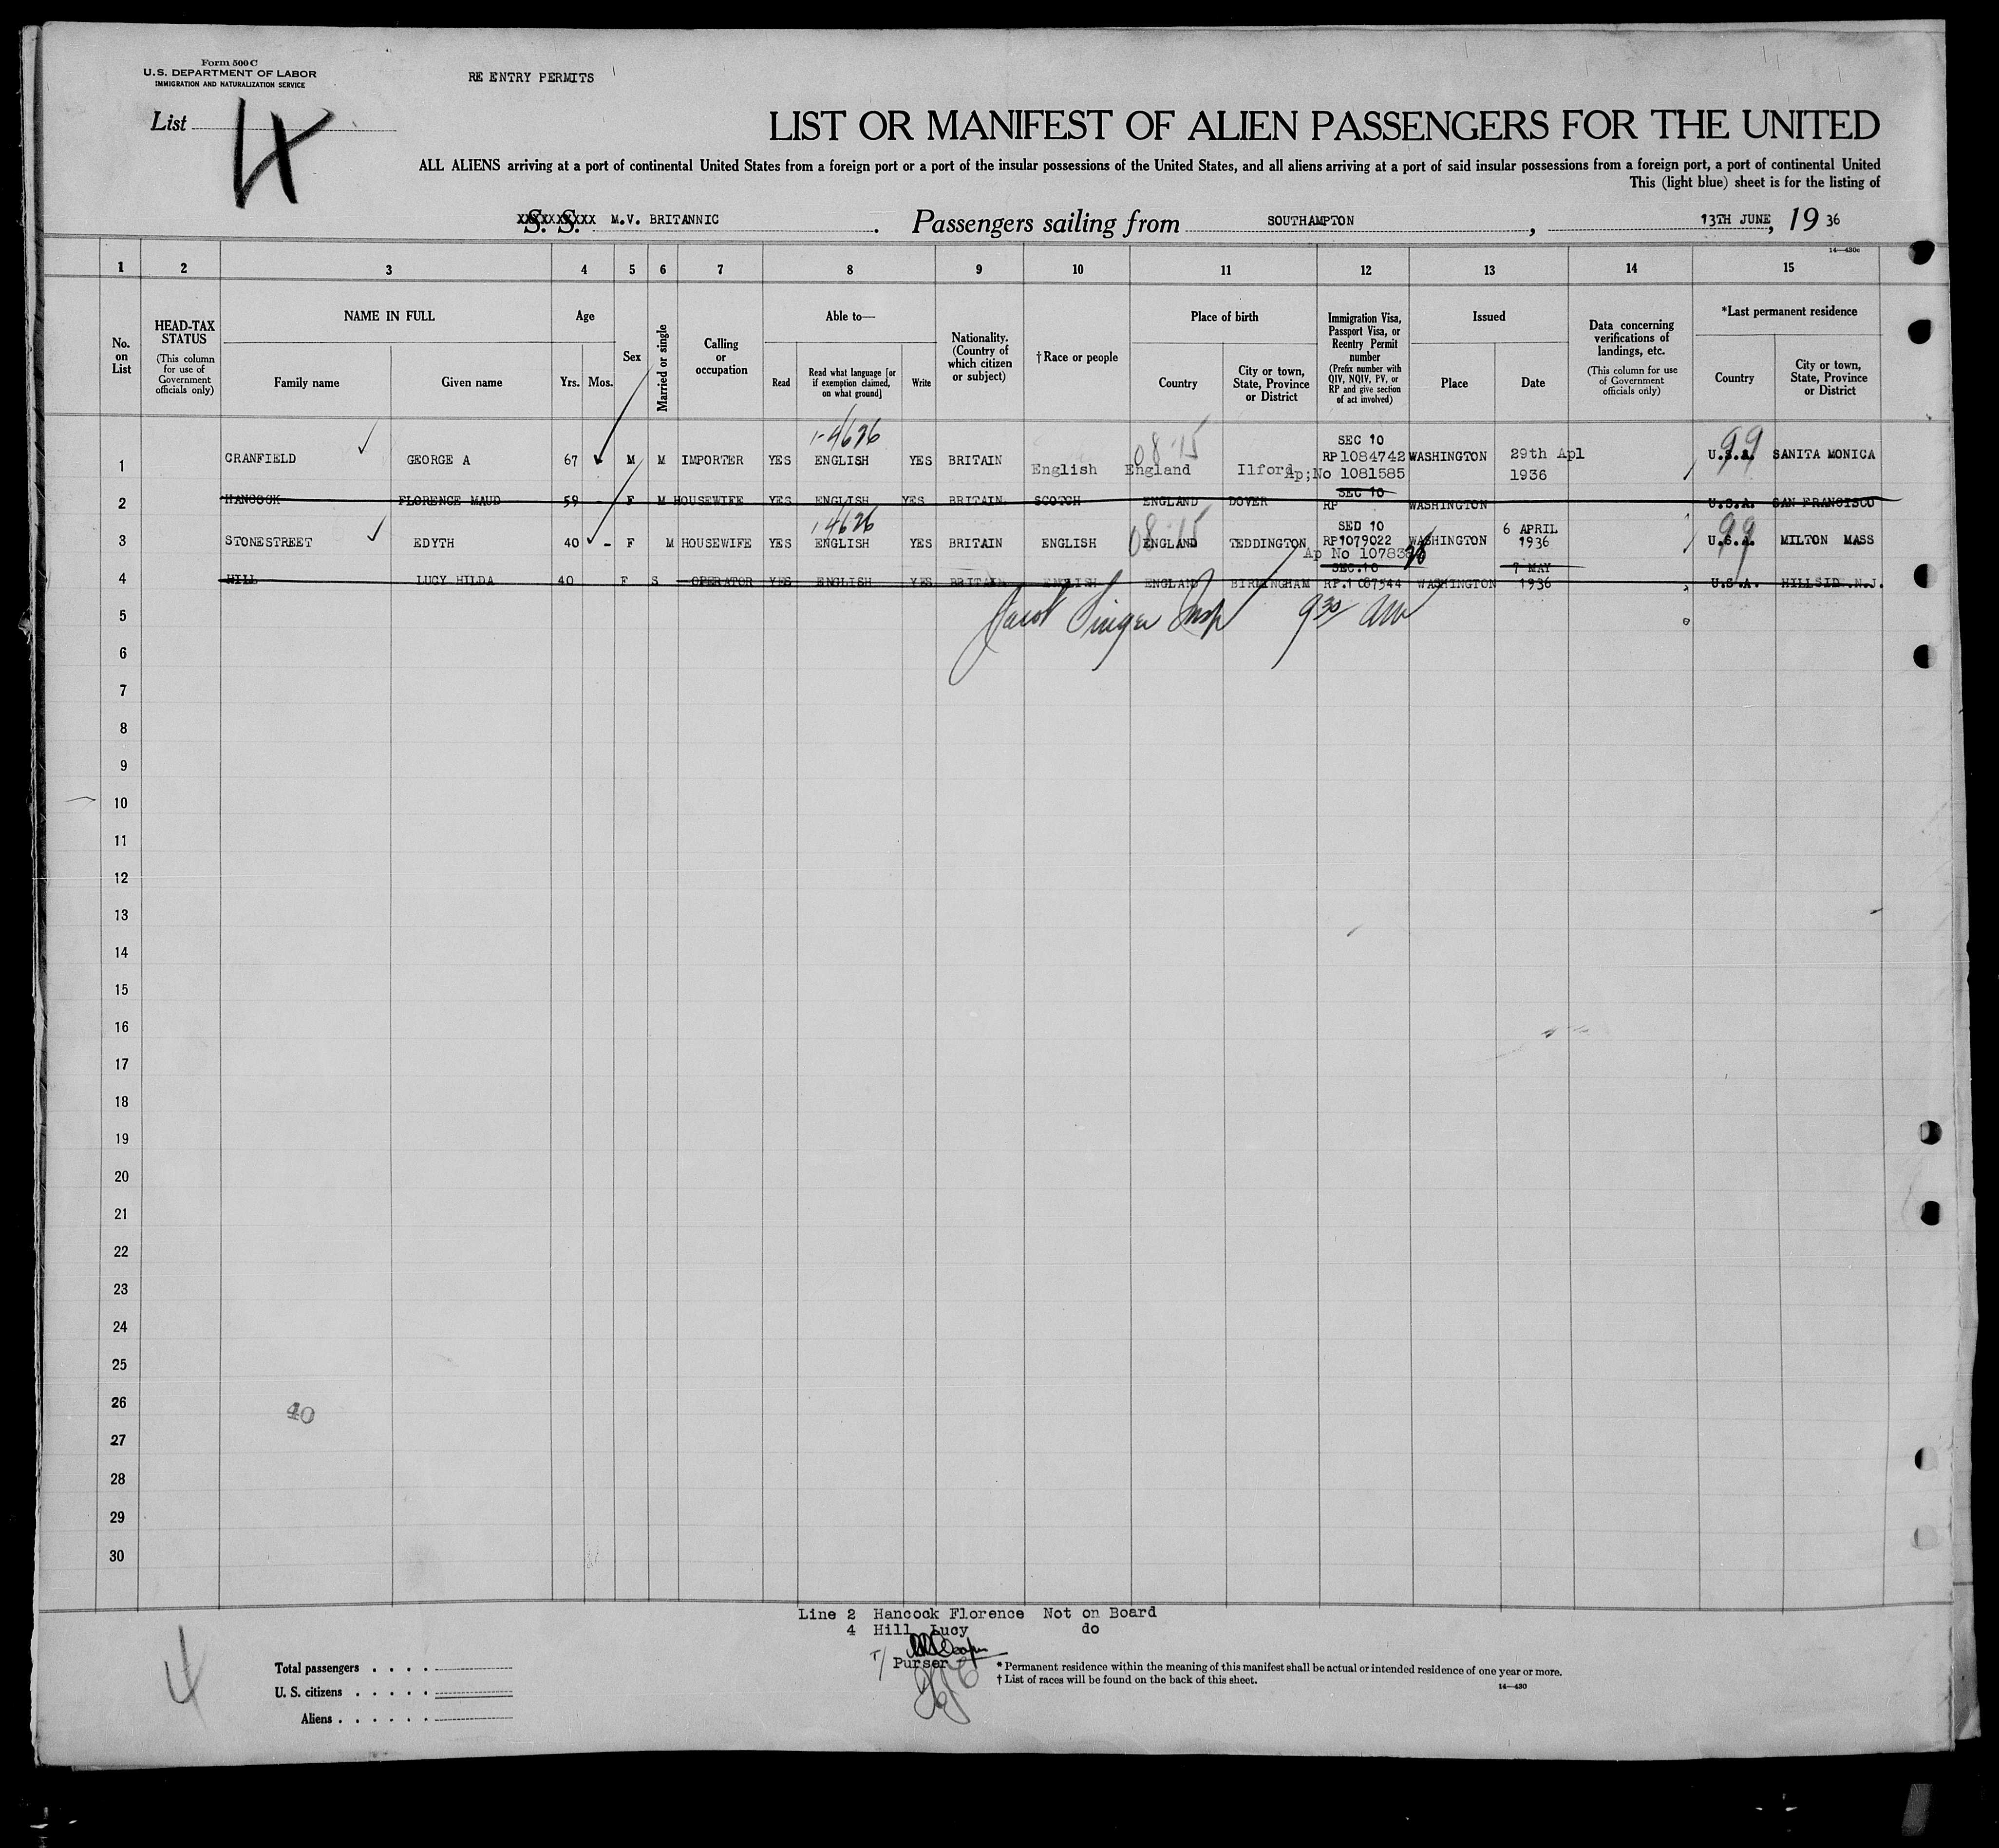 Form 500 C
U.S. DEPARTMENT OF LABOR
IMMIGRATION AND NATURALIZATION SERVICE
RE ENTRY PERMITS
List 4
LIST OR MANIFEST OF ALIEN PASSENGERS FOR THE UNITED
ALL ALIENS arriving at a port of continental United States from a foreign port or a port of the insular possessions of the United States, and all aliens arriving at a port of said insular possessions from a foreign port, a port of continental United
This (light blue) sheet is for the listing of
S. S. M.V. BRITANNIC. Passengers sailing from SOUTHAMPTON, 13TH JUNE, 19 36
14—430c
1 2 3 4 5 6 7 8 9 10 11 12 13 14 15
No. on List
HEAD-TAX STATUS (This column for use of Government officials only)
NAME IN FULL Family name Given name
Age Yrs. Mos.
Sex
Married or single
Calling or occupation
Able to— Read Read what language [or if exemption claimed, on what ground] Write
Nationality. (Country of which citizen or subject)
†Race or people
Place of birth Country City or town, State, Province or District
Immigration Visa, Passport Visa, or Reentry Permit number (Prefix number with QIV, NQIV, PV, or RP and give section of act involved)
Issued Place Date
Data concerning verifications of landings, etc. (This column for use of Government officials only)
*Last permanent residence Country City or town, State, Province or District
1-4626 08-15 SEC 10 99
1 CRANFIELD GEORGE A 67 M M IMPORTER YES ENGLISH YES BRITAIN English England Ilford RP 1084742 WASHINGTON 29th Apl U.S.A. SANITA MONICA
Ap;No 1081585 1936
SEC 10
2 HANCOCK FLORENCE MAUD 59 - F M HOUSEWIFE YES ENGLISH YES BRITAIN. SCOTCH ENGLAND DOVER RP WASHINGTON U.S.A. SAN FRANCISCO
1-4626 08-15 SED 10 6 APRIL 99
3 STONESTREET EDYTH 40 - F M HOUSEWIFE YES ENGLISH YES BRITAIN ENGLISH ENGLAND TEDDINGTON RP1079022 WASHINGTON 1936 U.S.A. MILTON MASS
Ap No 10783
SEC.10 7 MAY
4 HILL LUCY HILDA 40 F S OPERATOR YES ENGLISH YES BRITAIN ENGLISH ENGLAND BIRMINGHAM RP.1087544 WASHINGTON 1936 U.S.A. HILLSID .N.J.
5 Jacob Singer Insp 9 30 AM
6
7
8
9
10
11
12
13
14
15
16
17
18
19
20
21
22
23
24
25
26
40
27
28
29
30
Line 2 Hancock Florence Not on Board
4 Hill Lucy do
Purser
4
Total passengers
U. S. citizens
Aliens
* Permanent residence within the meaning of this manifest shall be actual or intended residence of one year or more.
† List of races will be found on the back of this sheet.
14—430